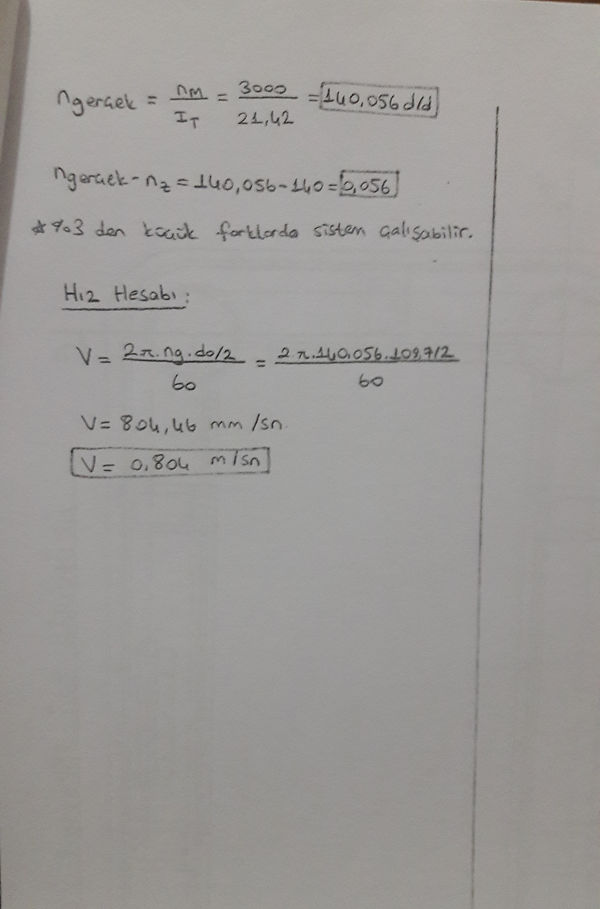 ngerçek = nM / IT = 3000 / 21,42 = 140,056 d/d
ngerçek - nz = 140,056 - 140 = 0,056
* %3 den küçük farklarda sistem çalışabilir.
Hız Hesabı:
V = 2π.ng.do/2 / 60 = 2π.140,056.109,7/2 / 60
V = 804,46 mm/sn
V = 0,804 m/sn